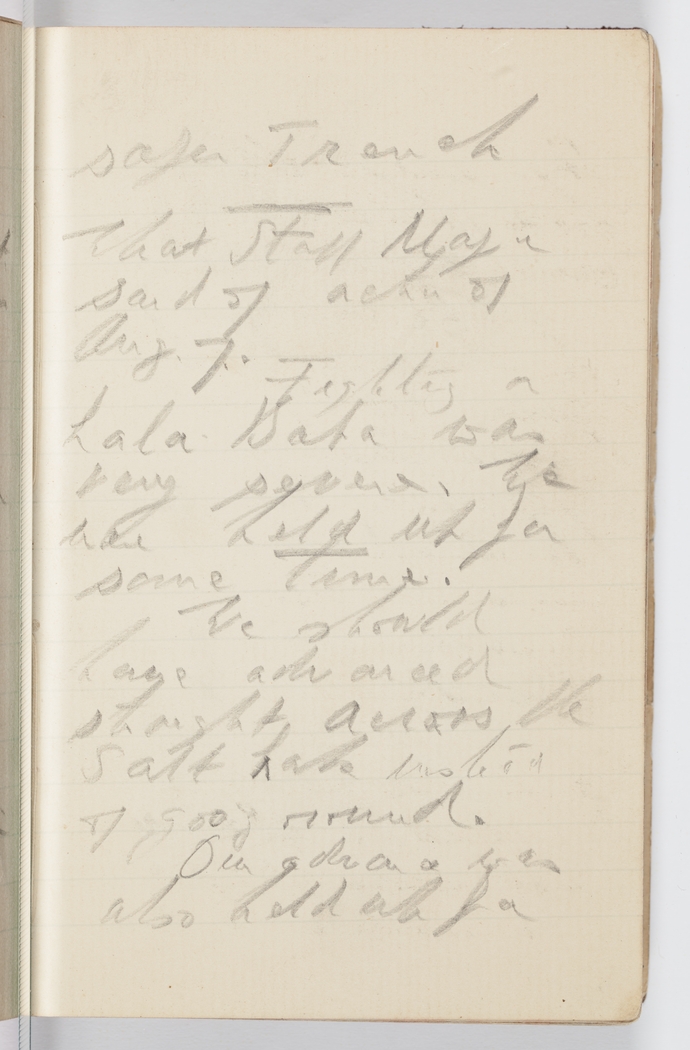 safer Trench
What Staff Major
said of action of
Aug. 7.
Fighting at
Lala Baba was
very severe. We
were held up for
some time.
We should
have advanced
straight across the
Salt Lake instead
of going round.
Our advance was
also held up for